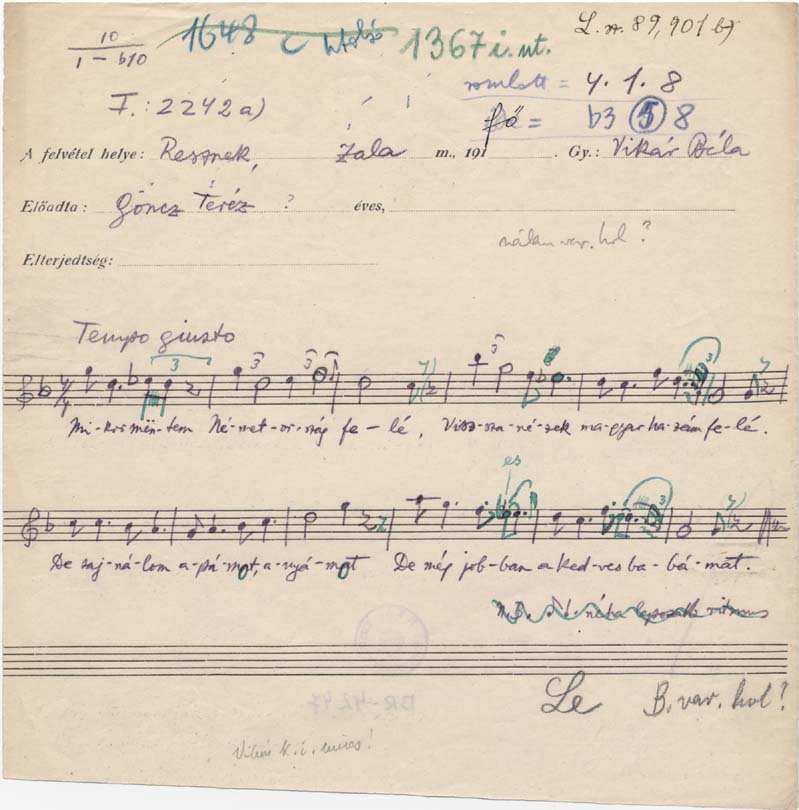 10
1 – b10
1648
1367 i. ut.
L. sz. 89,901 b)
F.: 2242 a)
romlott = 4. 1. 8
fő = b3 5 8
A felvétel helye: Resznek, Zala m., 191 . Gy.: Vikár Béla
Előadta: Göncz Teréz ? éves,
nálam var. hol?
Elterjedtség:
Tempo giusto
3 3 3 7) 3 3 7
Mi-kor mën-tem Né-met-or-szág fe-lé, Visz-sza-né-zek ma-gyar ha-zám fe-lé.
es
7)
De saj-ná-lom a-pá-mot, a-nyá-mot De még job-ban a ked-ves ba-bá-mat.
N.B. néha ritmus
BR-4247
Le B. var. hol?
Vikár k. i. nincs!